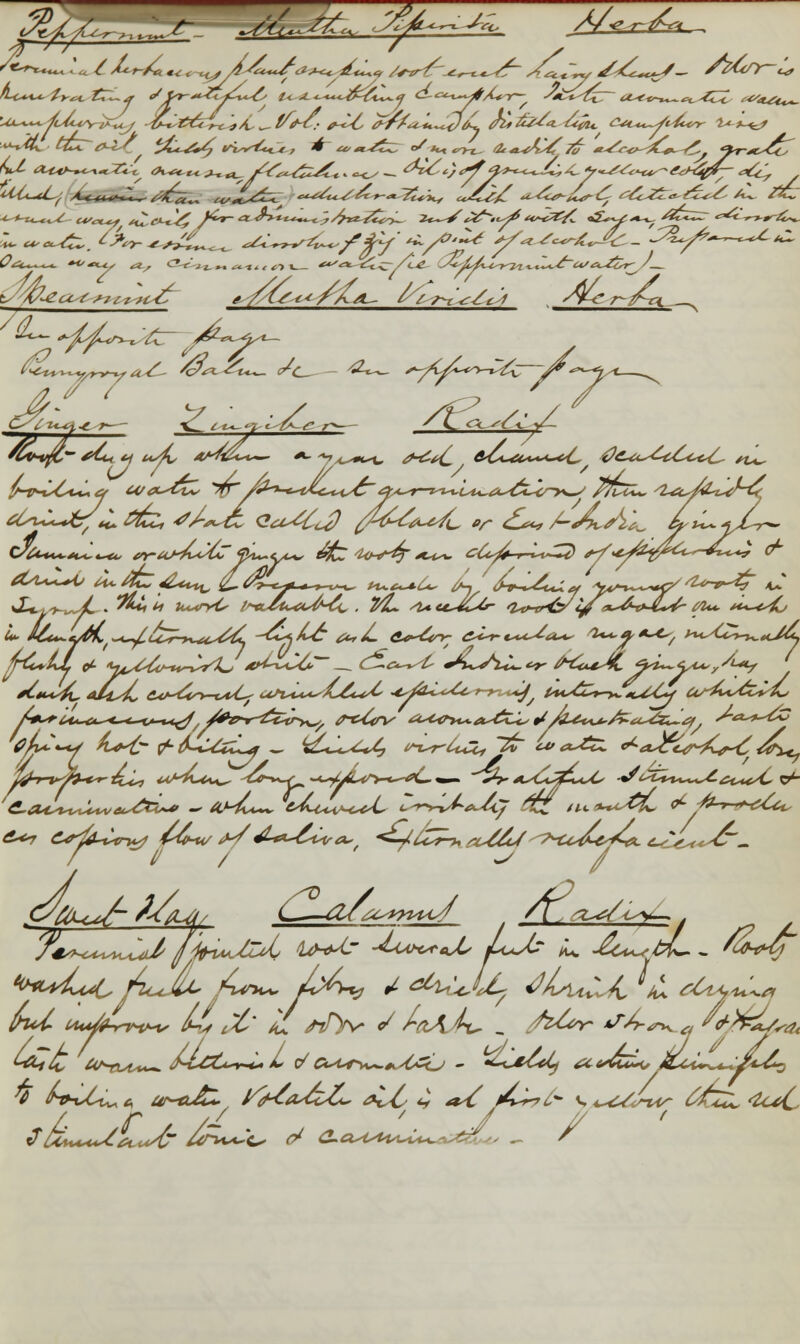 Peppermint - Mentha Piperita Herba
Perennial herbaceous plant, creeping root erect hairy stems - Odor is
penetrating & grateful, resembling camphor, Taste aromatic warm
camphorous bitterish - Vol: oil obtained by distillation, camphor rises
with the oil, Yields virtues to water & more readily to alcohol, grate
ful aromatic, nausea, flatulence - Oil is of greenish yellow color dis
tilled, heavier than water, adulterations with alcohol, detected in the
usual way, in oils, for administration rub it up with Sugar, then dissolve
in water. For essence dissolve f ℥ij in pint of alcohol - Prepared in
Same way as cinnamon water (ie Peppermint water) -
Spearmint Mentha Viridis Herba
See opposite page
Pennyroyal Balm &c - See opposite page
Ginger Zingiber Radix
Root dug up when a year old, cleaned, scalded in
boiling water to prevent germination, then rapidly
dried, in this state called black or East India ginger
Jamaica or white ginger the roots are deprived of epidermis &
dried in the sun - Preserve made by boiling young roots in
Syrup. This is most valuable. The recent root is about one inch
in length, externally light ash color, circular rugae, internally
fleshy & yellowish white - East India or black ginger, has
dark, ash colored, wrinkled epidermis, internally whitish
farinaceous, portion, odor aromatic & penetrating, taste
spicy hot & biting - Yields virtues to water & alcohol, loses
properties when long exposed - Grateful stimulant &
carminative - when chewed irritates the mouth & produ
ces copious flow of saliva, Externally rubefacient -
Sweet Flag Calamus Radix
Perennial jointed root several feet in length - Roots
washed freed from fibres & dried, Shrink in drying
but improve by it in odor & taste - Odor strong & fragra
taste warm bitterish & aromatic - Yields active principles
to boiling water, Volatile oil, is at first yellow, then red
stimulant tonic & carminative -